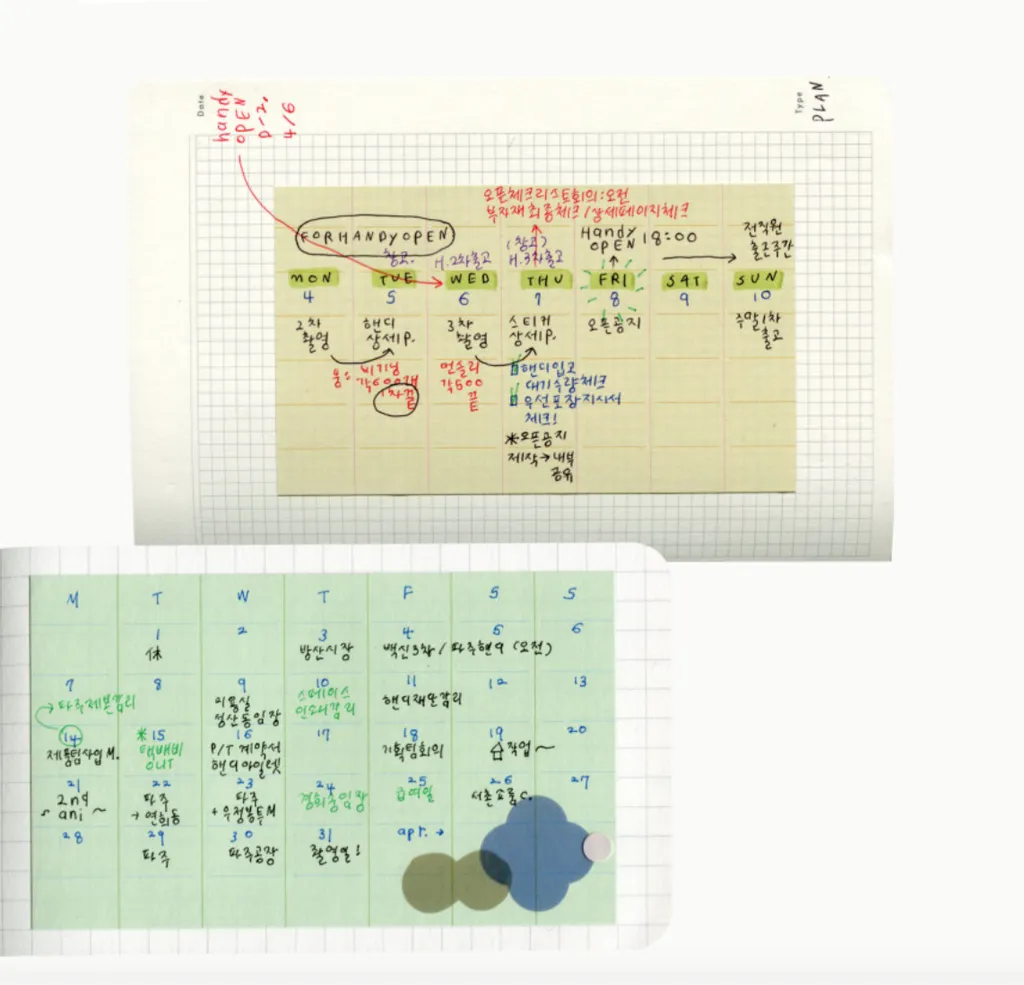 Date
handy
OPEN
D-2.
4/6
Type
PLAN
오픈체크리스트회의:오전
부자재최종체크/상세페이지체크
FOR HANDY OPEN
창고.
H.2차출고
(창고)
H.3차출고
Handy
OPEN 18:00
전직원
출근주간
MON TUE WED THU FRI SAT SUN
4 5 6 7 8 9 10
2차
촬영
핸디
상세P.
3차
촬영
스티커
상세P.
오픈공지
주말1차
출고
비기닝
각600개
1차끝
먼슬리
각500
끝
핸디입고
대기수량체크
우선포장지시서
체크!
*오픈공지
제작→내부
공유
M T W T F S S
1 2 3 4 5 6
休
방산시장
백신3차/파주핸9(오전)
7 8 9 10 11 12 13
→파주제본감리
미용실
성산동임장
스페이스
인쇄감리
핸디재단감리
14 *15 16 17 18 19 20
제품팀사업M.
택배비
OUT
P/T 계약서
핸디아일렛
기획팀회의
작업~
21 22 23 24 25 26 27
2nd
~ ani ~
파주
+연희동
파주
+우정봉투M
경희궁임장
급여일
서촌쇼룸C.
28 29 30 31 apr. →
파주
파주공장
촬영일!